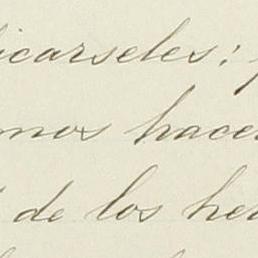 icarseles;
mos hacer
de los her